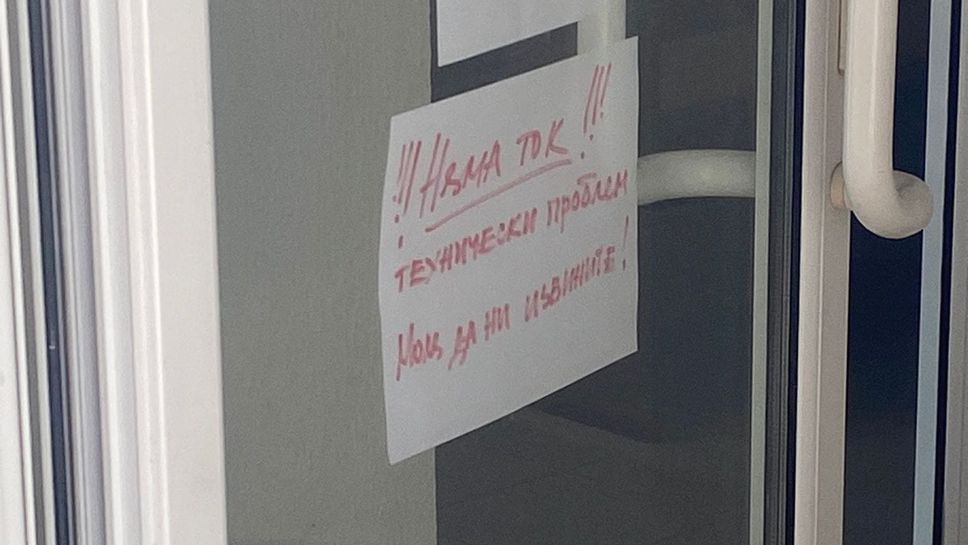 !!! Няма ток !!!
технически проблем
Моля да ни извините!